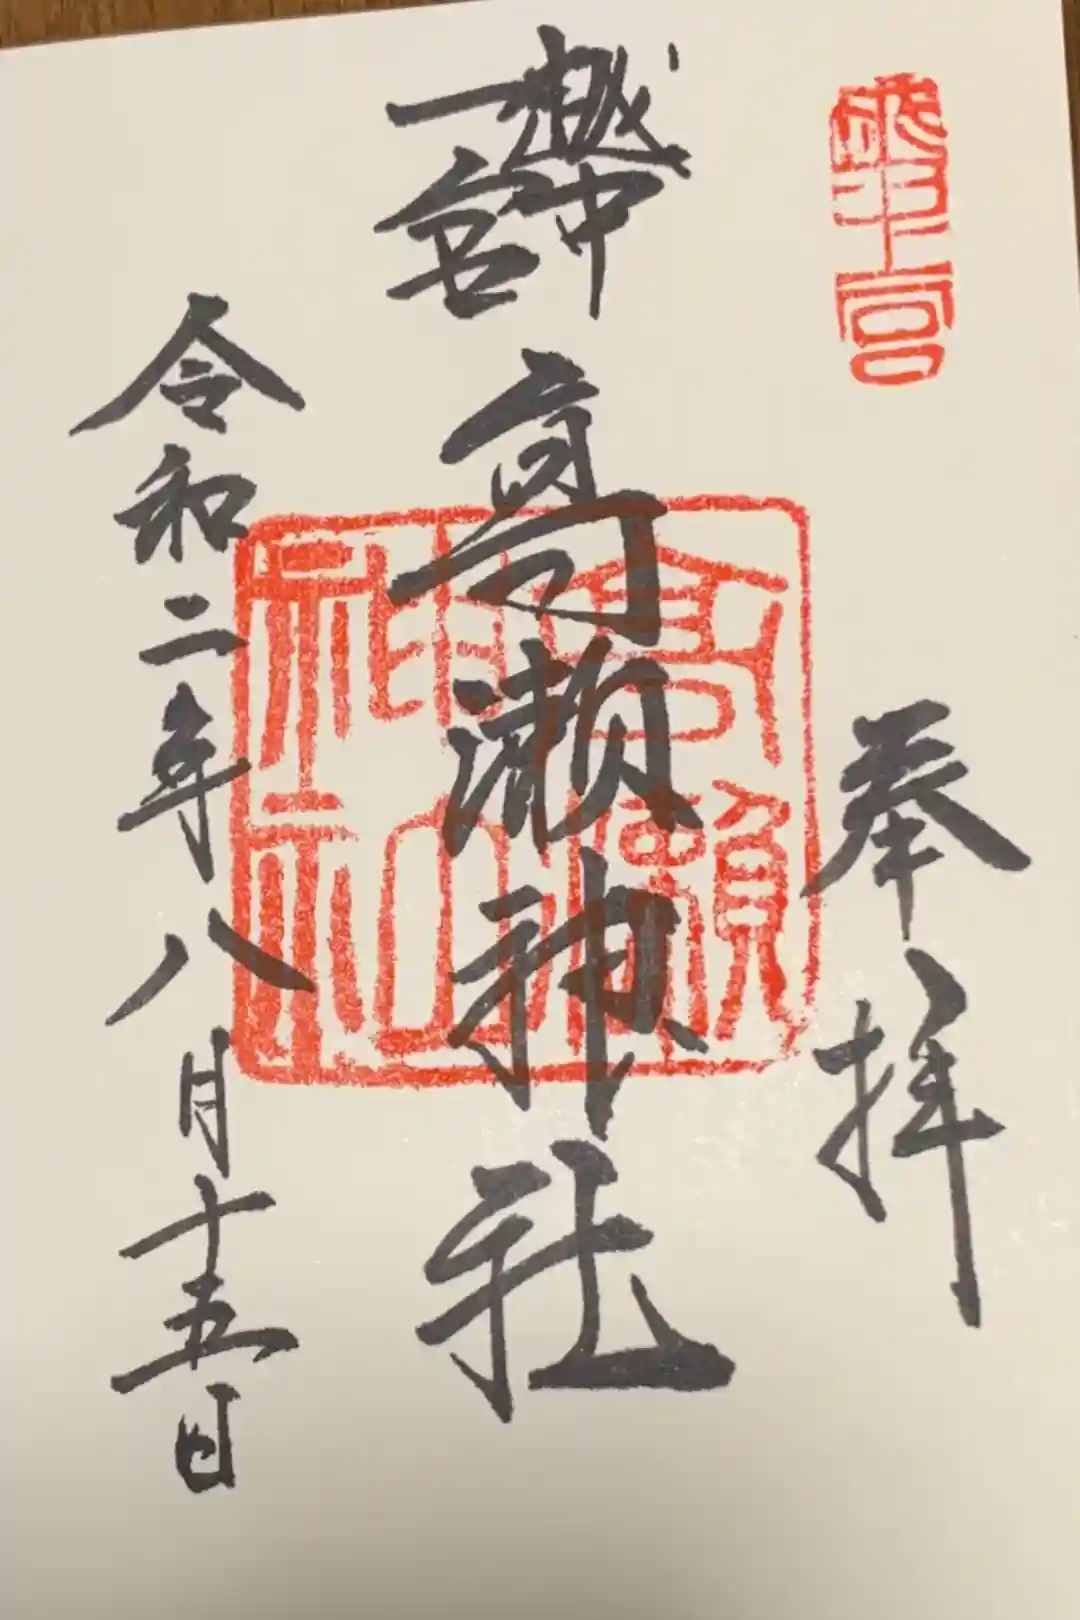 奉拝
越中
一宮
高瀬神社
高瀬神社印
令和二年八月十五日